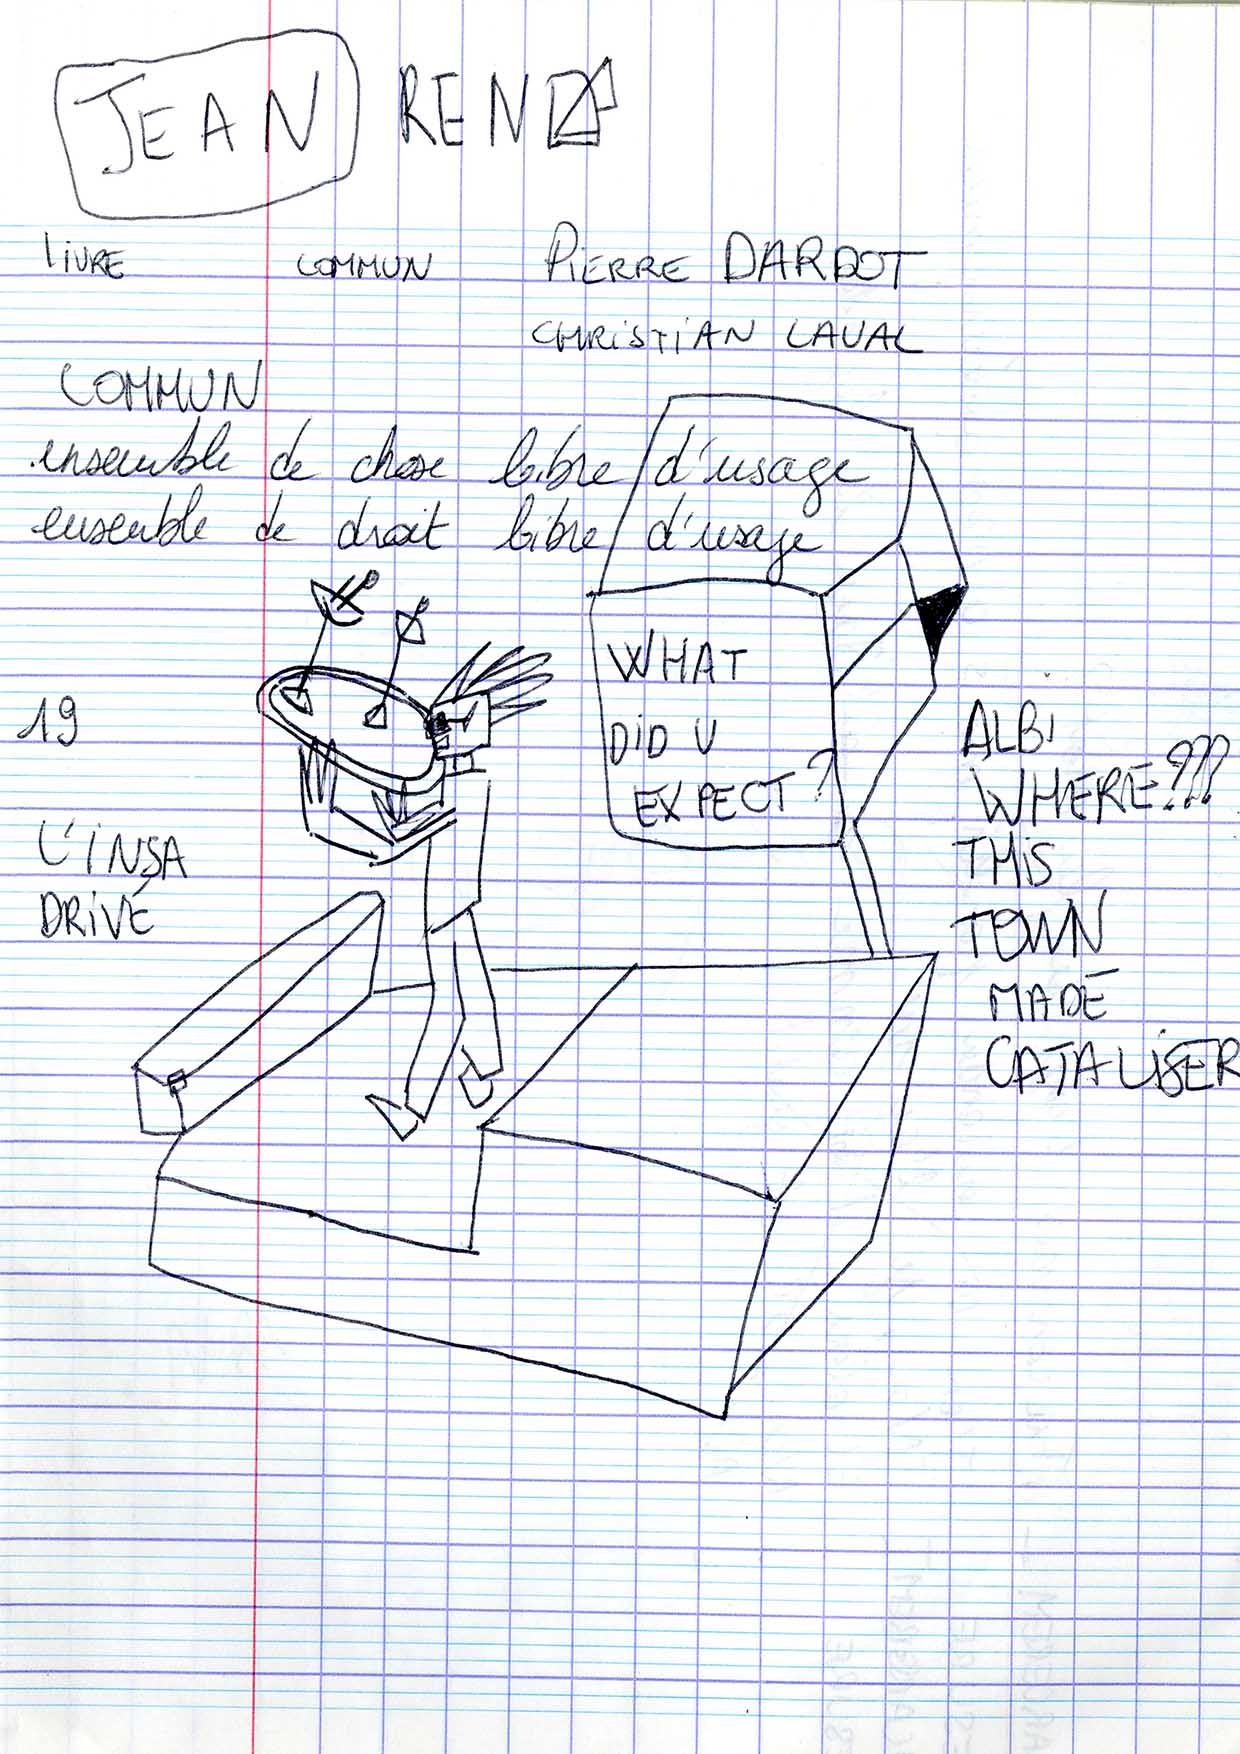 JEAN REN
LIVRE COMMUN PIERRE DARDOT
CHRISTIAN LAVAL
COMMUN
ensemble de chose libre d'usage
ensemble de droit libre d'usage
WHAT
DID U
EXPECT?
19
L'INSA
DRIVE
ALBI
WHERE???
THIS
TOWN
MADE
CATALISER